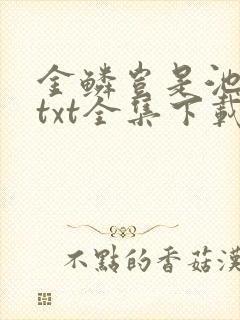 金鱗豈是池
txt全集下載
不點的香菇漢